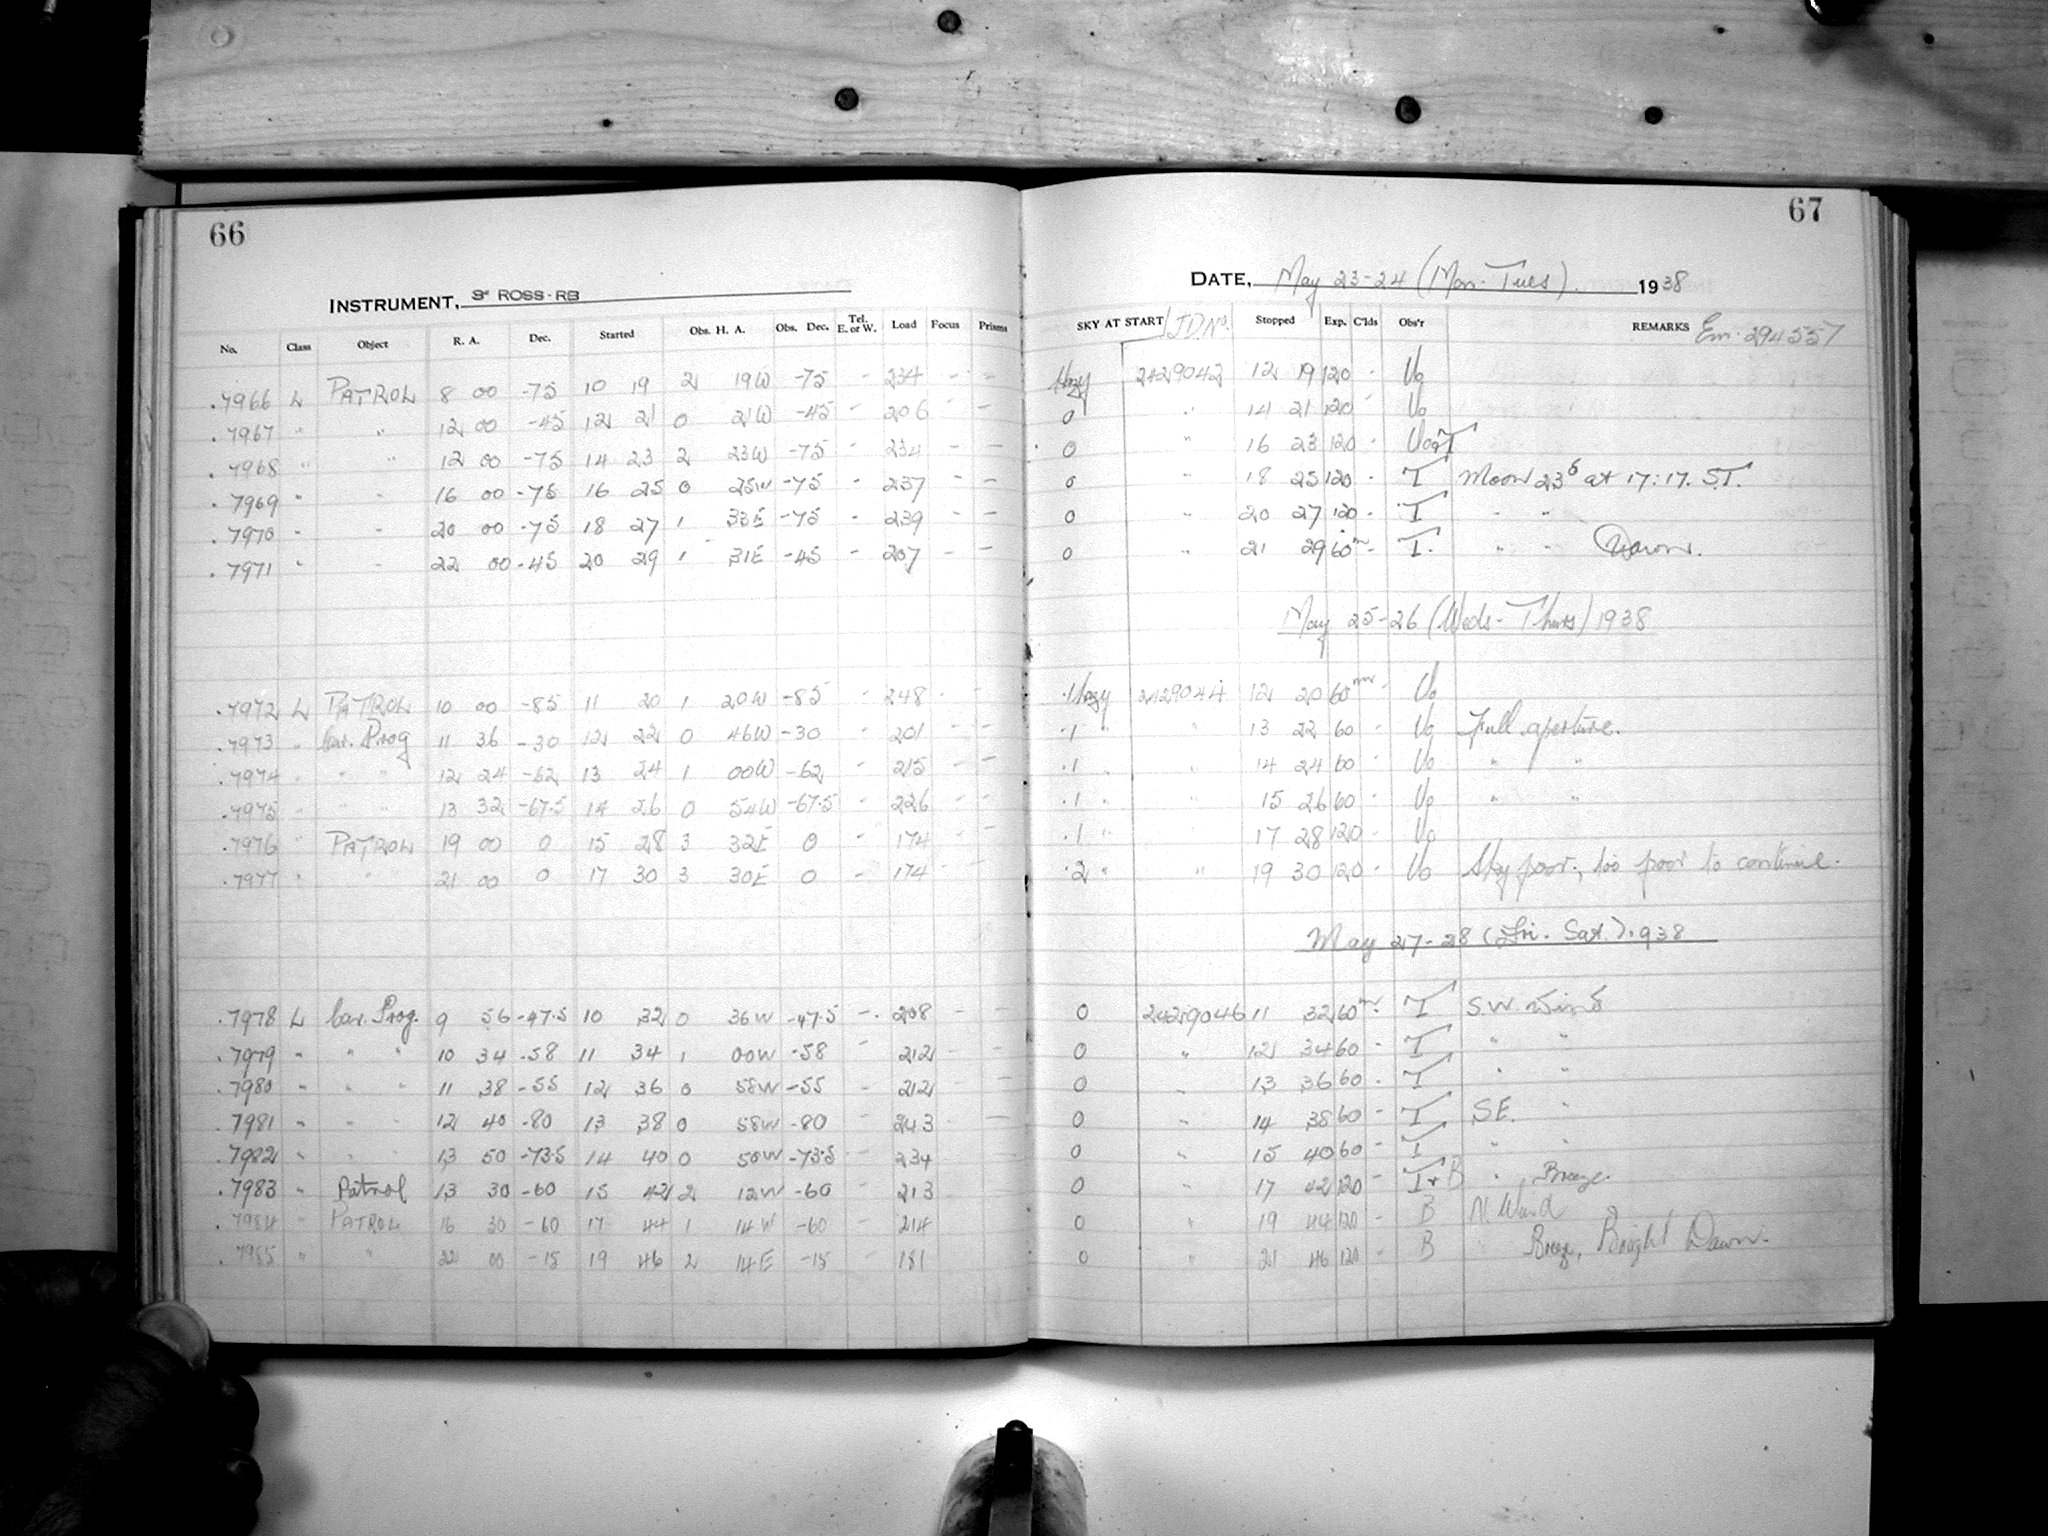 66
INSTRUMENT, 3" ROSS-RB
No. Class Object R. A. Dec. Started Obs. H. A. Obs. Dec. Tel. E. or W. Load Focus Prisms
.7966 L PATROL 8 00 -75 10 19 2 19W -75 - 234 - -
.7967 " " 12 00 -45 12 21 0 21W -45 - 206 - -
.7968 " " 12 00 -75 14 23 2 23W -75 - 234 - -
.7969 " " 16 00 -75 16 25 0 25W -75 - 237 - -
.7970 " " 20 00 -75 18 27 1 33E -75 - 239 - -
.7971 " " 22 00 -45 20 29 1 31E -45 - 207 - -
.7972 L PATROL 10 00 -85 11 20 1 20W -85 - 248 - -
.7973 " Car. Prog 11 36 -30 12 22 0 46W -30 - 201 - -
.7974 " " " 12 24 -62 13 24 1 00W -62 - 215 - -
.7975 " " " 13 32 -67.5 14 26 0 54W -67.5 - 226 - -
.7976 " PATROL 19 00 0 15 28 3 32E 0 - 174 - -
.7977 " " 21 00 0 17 30 3 30E 0 - 174 - -
.7978 L Car. Prog. 9 56 -47.5 10 32 0 36W -47.5 - 208 - -
.7979 " " " 10 34 -58 11 34 1 00W -58 - 212 - -
.7980 " " " 11 38 -55 12 36 0 58W -55 - 212 - -
.7981 " " " 12 40 -80 13 38 0 58W -80 - 243 - -
.7982 " " " 13 50 -73.5 14 40 0 50W -73.5 - 234 - -
.7983 " Patrol 13 30 -60 15 42 2 12W -60 - 213 - -
.7984 " PATROL 16 30 -60 17 44 1 14W -60 - 214 - -
.7985 " " 22 00 -15 19 46 2 14E -15 - 181
67
DATE, May 23-24 (Mon-Tues). 1938
SKY AT START J.D. No. Stopped Exp. C'lds Obs'r REMARKS Em. 294557
Hazy 2429042 12 19 120 - Uo
0 " 14 21 120 - Uo
0 " 16 23 120 - Uo+T
0 " 18 25 120 - T Moon 23d at 17:17. S.T.
0 " 20 27 120 - T " "
0 " 21 29 60m - T. " " Dawn.
May 25-26 (Weds-Thurs) 1938
.1 Hazy 2429044 12 20 60m - Uo
.1 " " 13 22 60 - Uo Full aperture.
.1 " " 14 24 60 - Uo " "
.1 " " 15 26 60 - Uo " "
.1 " " 17 28 120 - Uo
.2 " " 19 30 120 - Uo Sky poor, too poor to continue.
May 27-28 (Fri. Sat.) 1938
0 2429046 11 32 60m - T S.W. Wind
0 " 12 34 60 - T " "
0 " 13 36 60 - T " "
0 " 14 38 60 - T S.E. "
0 " 15 40 60 - T " "
0 " 17 42 120 - T+B " Breeze.
0 " 19 44 120 - B N. Wind
0 " 21 46 120 - B " Breeze, Bright Dawn.